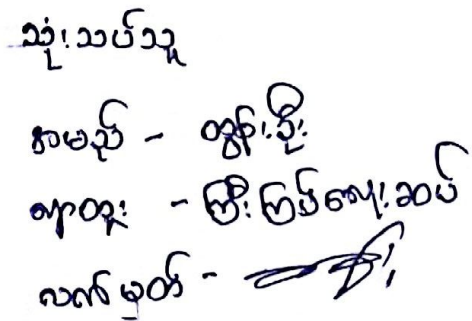 သုံးသပ်သူ
အမည် - ထွန်းဦး
ရာထူး - ကြီးကြပ်ရေးဆပ်
လက်မှတ် -